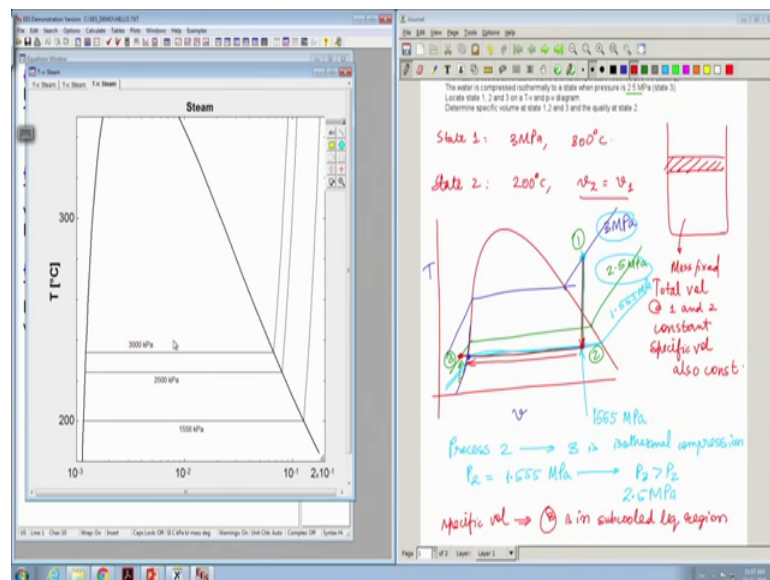 EES Demonstration Version C:\EES_DEMO\HELLO.TXT
File Edit Search Options Calculate Tables Plots Windows Help Examples
Equations Window
T-v: Steam
T-v: Steam T-v: Steam T-v: Steam
Steam
300
200
T [°C]
3000 kPa
2500 kPa
1550 kPa
10-3
10-2
10-1
2x10-1
Line: 1 Char: 10 Wrap: On Insert Caps Lock: Off SI C kPa kJ mass deg Warnings: On Unit Chk: Auto Complex: Off
Xournal
File Edit View Page Tools Options Help
The water is compressed isothermally to a state when pressure is 2.5 MPa (state 3).
Locate state 1, 2 and 3 on a T-v and p-v diagram.
Determine specific volume at state 1,2 and 3 and the quality at state 2.
State 1: 3MPa, 300°C.
State 2: 200°C, v2 = v1
Mass fixed
Total vol
@ 1 and 2
constant
specific vol
also const.
T
3MPa
2.5MPa
1.555MPa
1
2
3
v
1555 MPa
Process 2 → 3 is isothermal compression
P2 = 1.555 MPa → P2 > P2
2.5MPa
specific vol → 3 is in subcooled liq region
Page 1 of 2 Layer: Layer 1